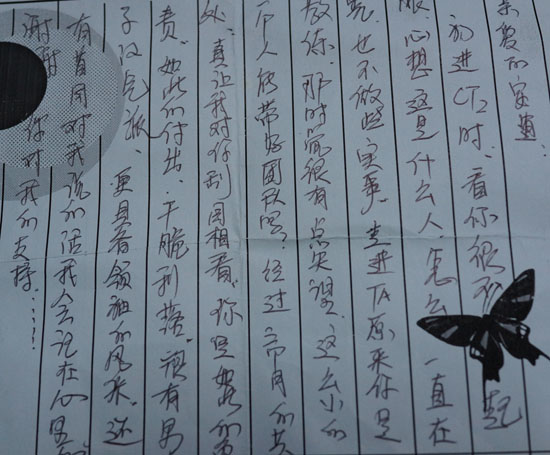 亲爱的家
初进CT2时、看你很不起
眼、心想这是什么人、怎么一直在
晃、也不做些实事。走进TA原来你是
教练。那时候很有点失望、这么小的
一个人能带好团队吗?经过一个月的共
处、真让我对你刮目相看、你是如此的
责、如此的付出、干脆利落、颇有男
子汉气派、更具有领袖的风采、还
有首周对我说的话我会记在心里的
谢谢你对我的支持……